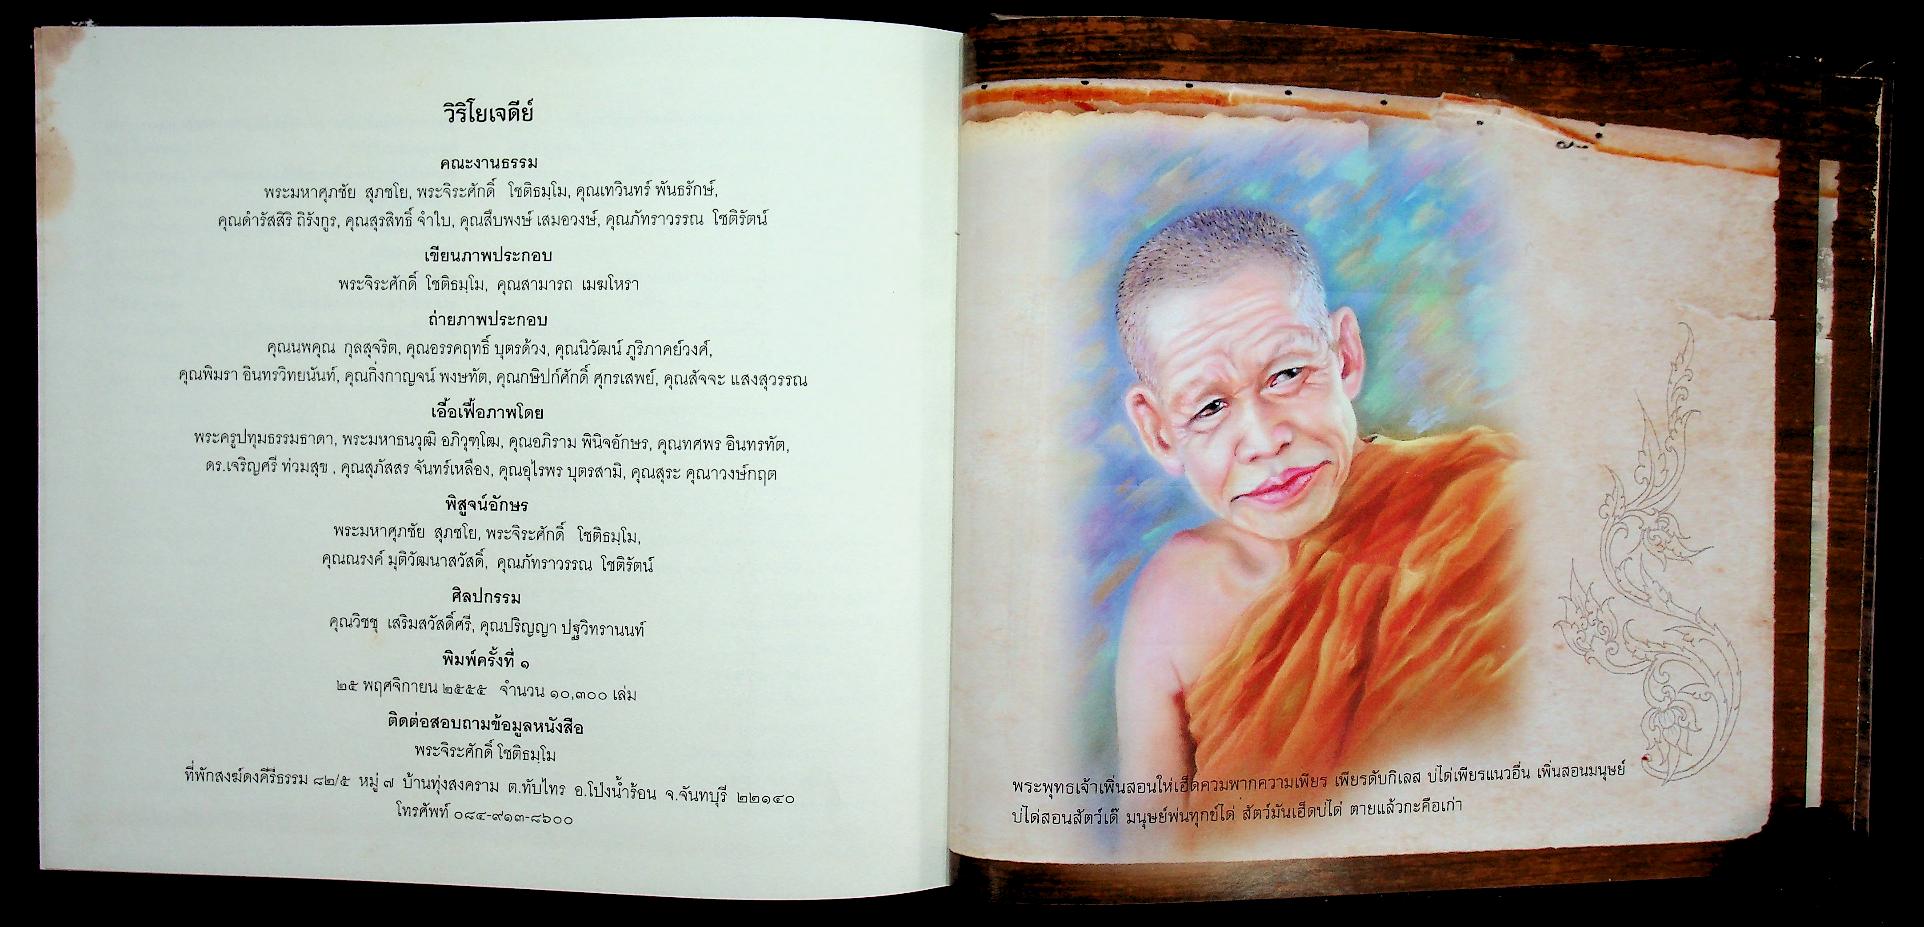 วิริโยเจดีย์
คณะงานธรรม
พระมหาศุภชัย สุภชโย, พระจิระศักดิ์ โชติธมฺโม, คุณเทวินทร์ พันธรักษ์,
คุณดำรัสสิริ ถิรังกูร, คุณสุรสิทธิ์ จำใบ, คุณสืบพงษ์ เสมอวงษ์, คุณภัทราวรรณ โชติรัตน์
เขียนภาพประกอบ
พระจิระศักดิ์ โชติธมฺโม, คุณสามารถ เมฆโหรา
ถ่ายภาพประกอบ
คุณนพคุณ กุลสุจริต, คุณอรรคฤทธิ์ บุตรด้วง, คุณนิวัฒน์ ภูริภาคย์วงศ์,
คุณพิมรา อินทรวิทยนันท์, คุณกิ่งกาญจน์ พงษทัต, คุณกษิปก์ศักดิ์ ศุกรเสพย์, คุณสัจจะ แสงสุวรรณ
เอื้อเฟื้อภาพโดย
พระครูปทุมธรรมธาดา, พระมหาธนวุฒิ อภิวุฑฺโฒ, คุณอภิราม พินิจอักษร, คุณทศพร อินทรทัต,
ดร.เจริญศรี ท่วมสุข , คุณสุภัสสร จันทร์เหลือง, คุณอุไรพร บุตรสามิ, คุณสุระ คุณาวงษ์กฤต
พิสูจน์อักษร
พระมหาศุภชัย สุภชโย, พระจิระศักดิ์ โชติธมฺโม,
คุณณรงค์ มุติวัฒนาสวัสดิ์, คุณภัทราวรรณ โชติรัตน์
ศิลปกรรม
คุณวิชชุ เสริมสวัสดิ์ศรี, คุณปริญญา ปฐวิทรานนท์
พิมพ์ครั้งที่ ๑
๒๕ พฤศจิกายน ๒๕๕๕ จำนวน ๑๐,๓๐๐ เล่ม
ติดต่อสอบถามข้อมูลหนังสือ
พระจิระศักดิ์ โชติธมฺโม
ที่พักสงฆ์ดงคีรีธรรม ๘๒/๕ หมู่ ๗ บ้านทุ่งสงคราม ต.ทับไทร อ.โป่งน้ำร้อน จ.จันทบุรี ๒๒๑๔๐
โทรศัพท์ ๐๘๔-๙๑๓-๘๖๐๐
พระพุทธเจ้าเพิ่นสอนให้เฮ็ดความพากความเพียร เพียรดับกิเลส บ่ได่เพียรแนวอื่น เพิ่นสอนมนุษย์
บ่ได่สอนสัตว์เด๊ มนุษย์พ่นทุกข์ได่ สัตว์มันเฮ็ดบ่ได่ ตายแล้วกะคือเก่า